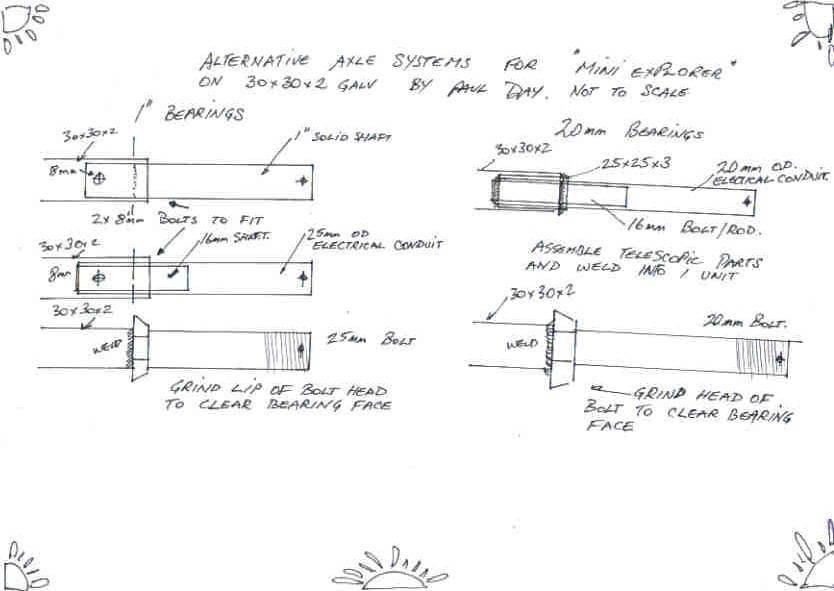 ALTERNATIVE AXLE SYSTEMS FOR "MINI EXPLORER"
ON 30x30x2 GALV BY PAUL DAY. NOT TO SCALE
1" BEARINGS
30x30x2
1" SOLID SHAFT
8mm
2 x 8mm BOLTS TO FIT
30x30x2
16mm SHAFT.
25mm OD
ELECTRICAL CONDUIT
8mm
30x30x2
WELD
25mm BOLT
GRIND LIP OF BOLT HEAD
TO CLEAR BEARING FACE
20mm BEARINGS
30x30x2
25x25x3
20mm OD.
ELECTRICAL CONDUIT.
16mm BOLT/ROD.
ASSEMBLE TELESCOPIC PARTS
AND WELD INTO 1 UNIT
30x30x2
20mm BOLT.
WELD
GRIND HEAD OF
BOLT TO CLEAR BEARING
FACE